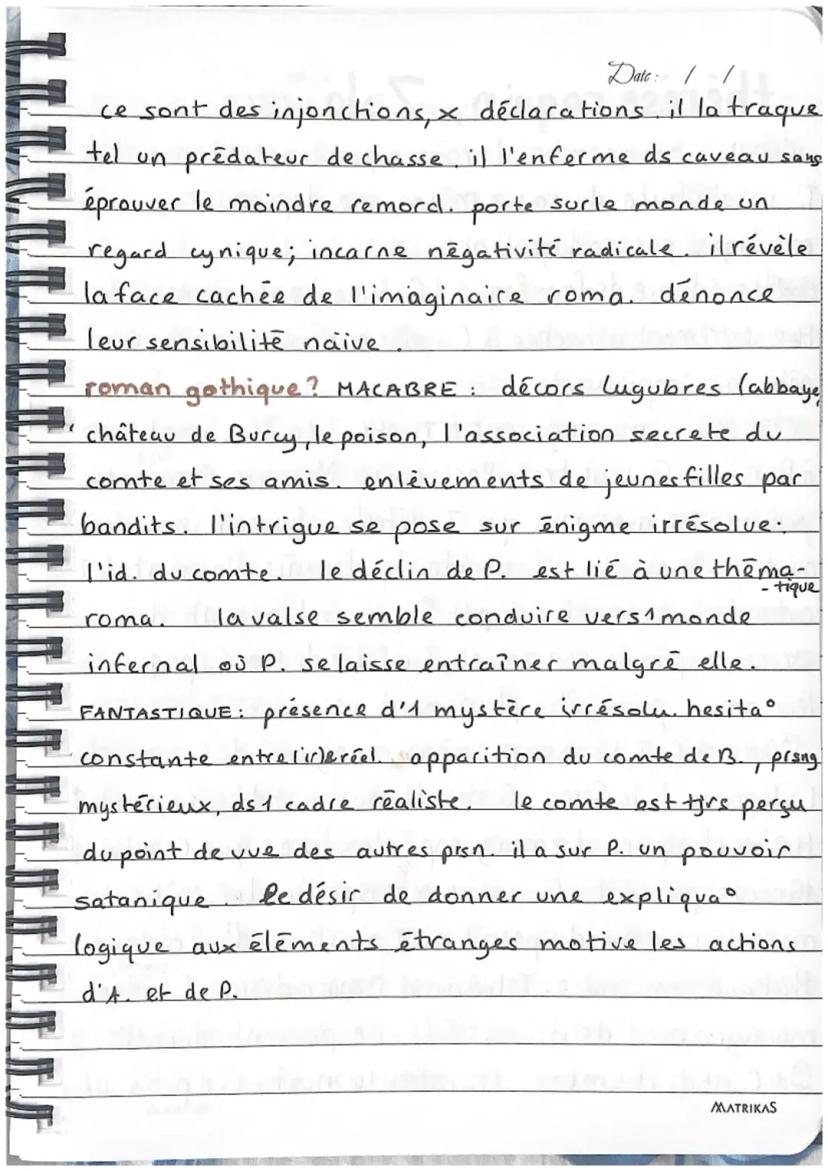 Date: / /
ce sont des injonctions, x déclarations. il la traque
tel un prédateur de chasse. il l'enferme ds caveau sans
éprouver le moindre remord. porte sur le monde un
regard cynique; incarne négativité radicale. il révèle
la face cachée de l'imaginaire roma. dénonce
leur sensibilité naïve.
roman gothique? MACABRE : décors lugubres (abbaye,
château de Burcy, le poison, l'association secrete du
comte et ses amis. enlèvements de jeunes filles par
bandits. l'intrigue se pose sur énigme irrésolue:
l'id. du comte. le déclin de P. est lié à une théma-
-tique
roma. la valse semble conduire vers 1 monde
infernal où P. se laisse entraîner malgré elle.
FANTASTIQUE: présence d'1 mystère irrésolu. hesita°
constante entre (ir)réel. apparition du comte de B., prsng
mystérieux, ds 1 cadre réaliste. le comte est tjrs perçu
du point de vue des autres prsn. il a sur P. un pouvoir
satanique. le désir de donner une expliqua°
logique aux éléments étranges motive les actions
d'A. et de P.
MATRIKAS